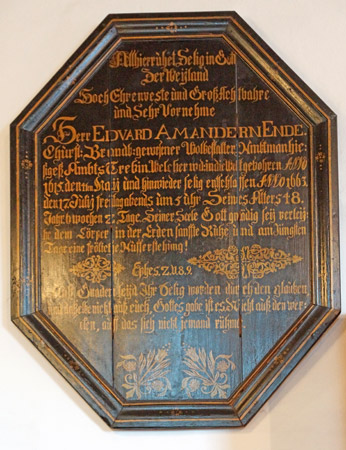 Allhier ruhet Selig in Gott
Der Weyland
Hoch Ehrenveste und Großachtbahre
und Sehr Vornehme
Herr EDVARD AMANDERN ENDE.
Churf: Brandl: gewesener Ambtman hie-
siges Ambts Trebin Welcher gebohren ANNO
1615 den May und hinwieder selig entschlaffen ANNO 1663.
den 17 July freitag abends um 5 uhr Seines Alters 48.
Jahr 6 wochen 2. Tage. Seiner Seele Gott genädig sey verleih
he dem Cörper in der Erden sanffte Ruhe und am Jüngsten
Tage eine fröliche Aufferstehung!
Ephes. 2. v. 8. 9.
Auß Gnaden seyd Ihr Selig worden durch den glauben
und daßelbe nicht auß euch, Gottes gabe ist es. Nicht auß den wer-
cken, auff das sich nicht jemand rühme.